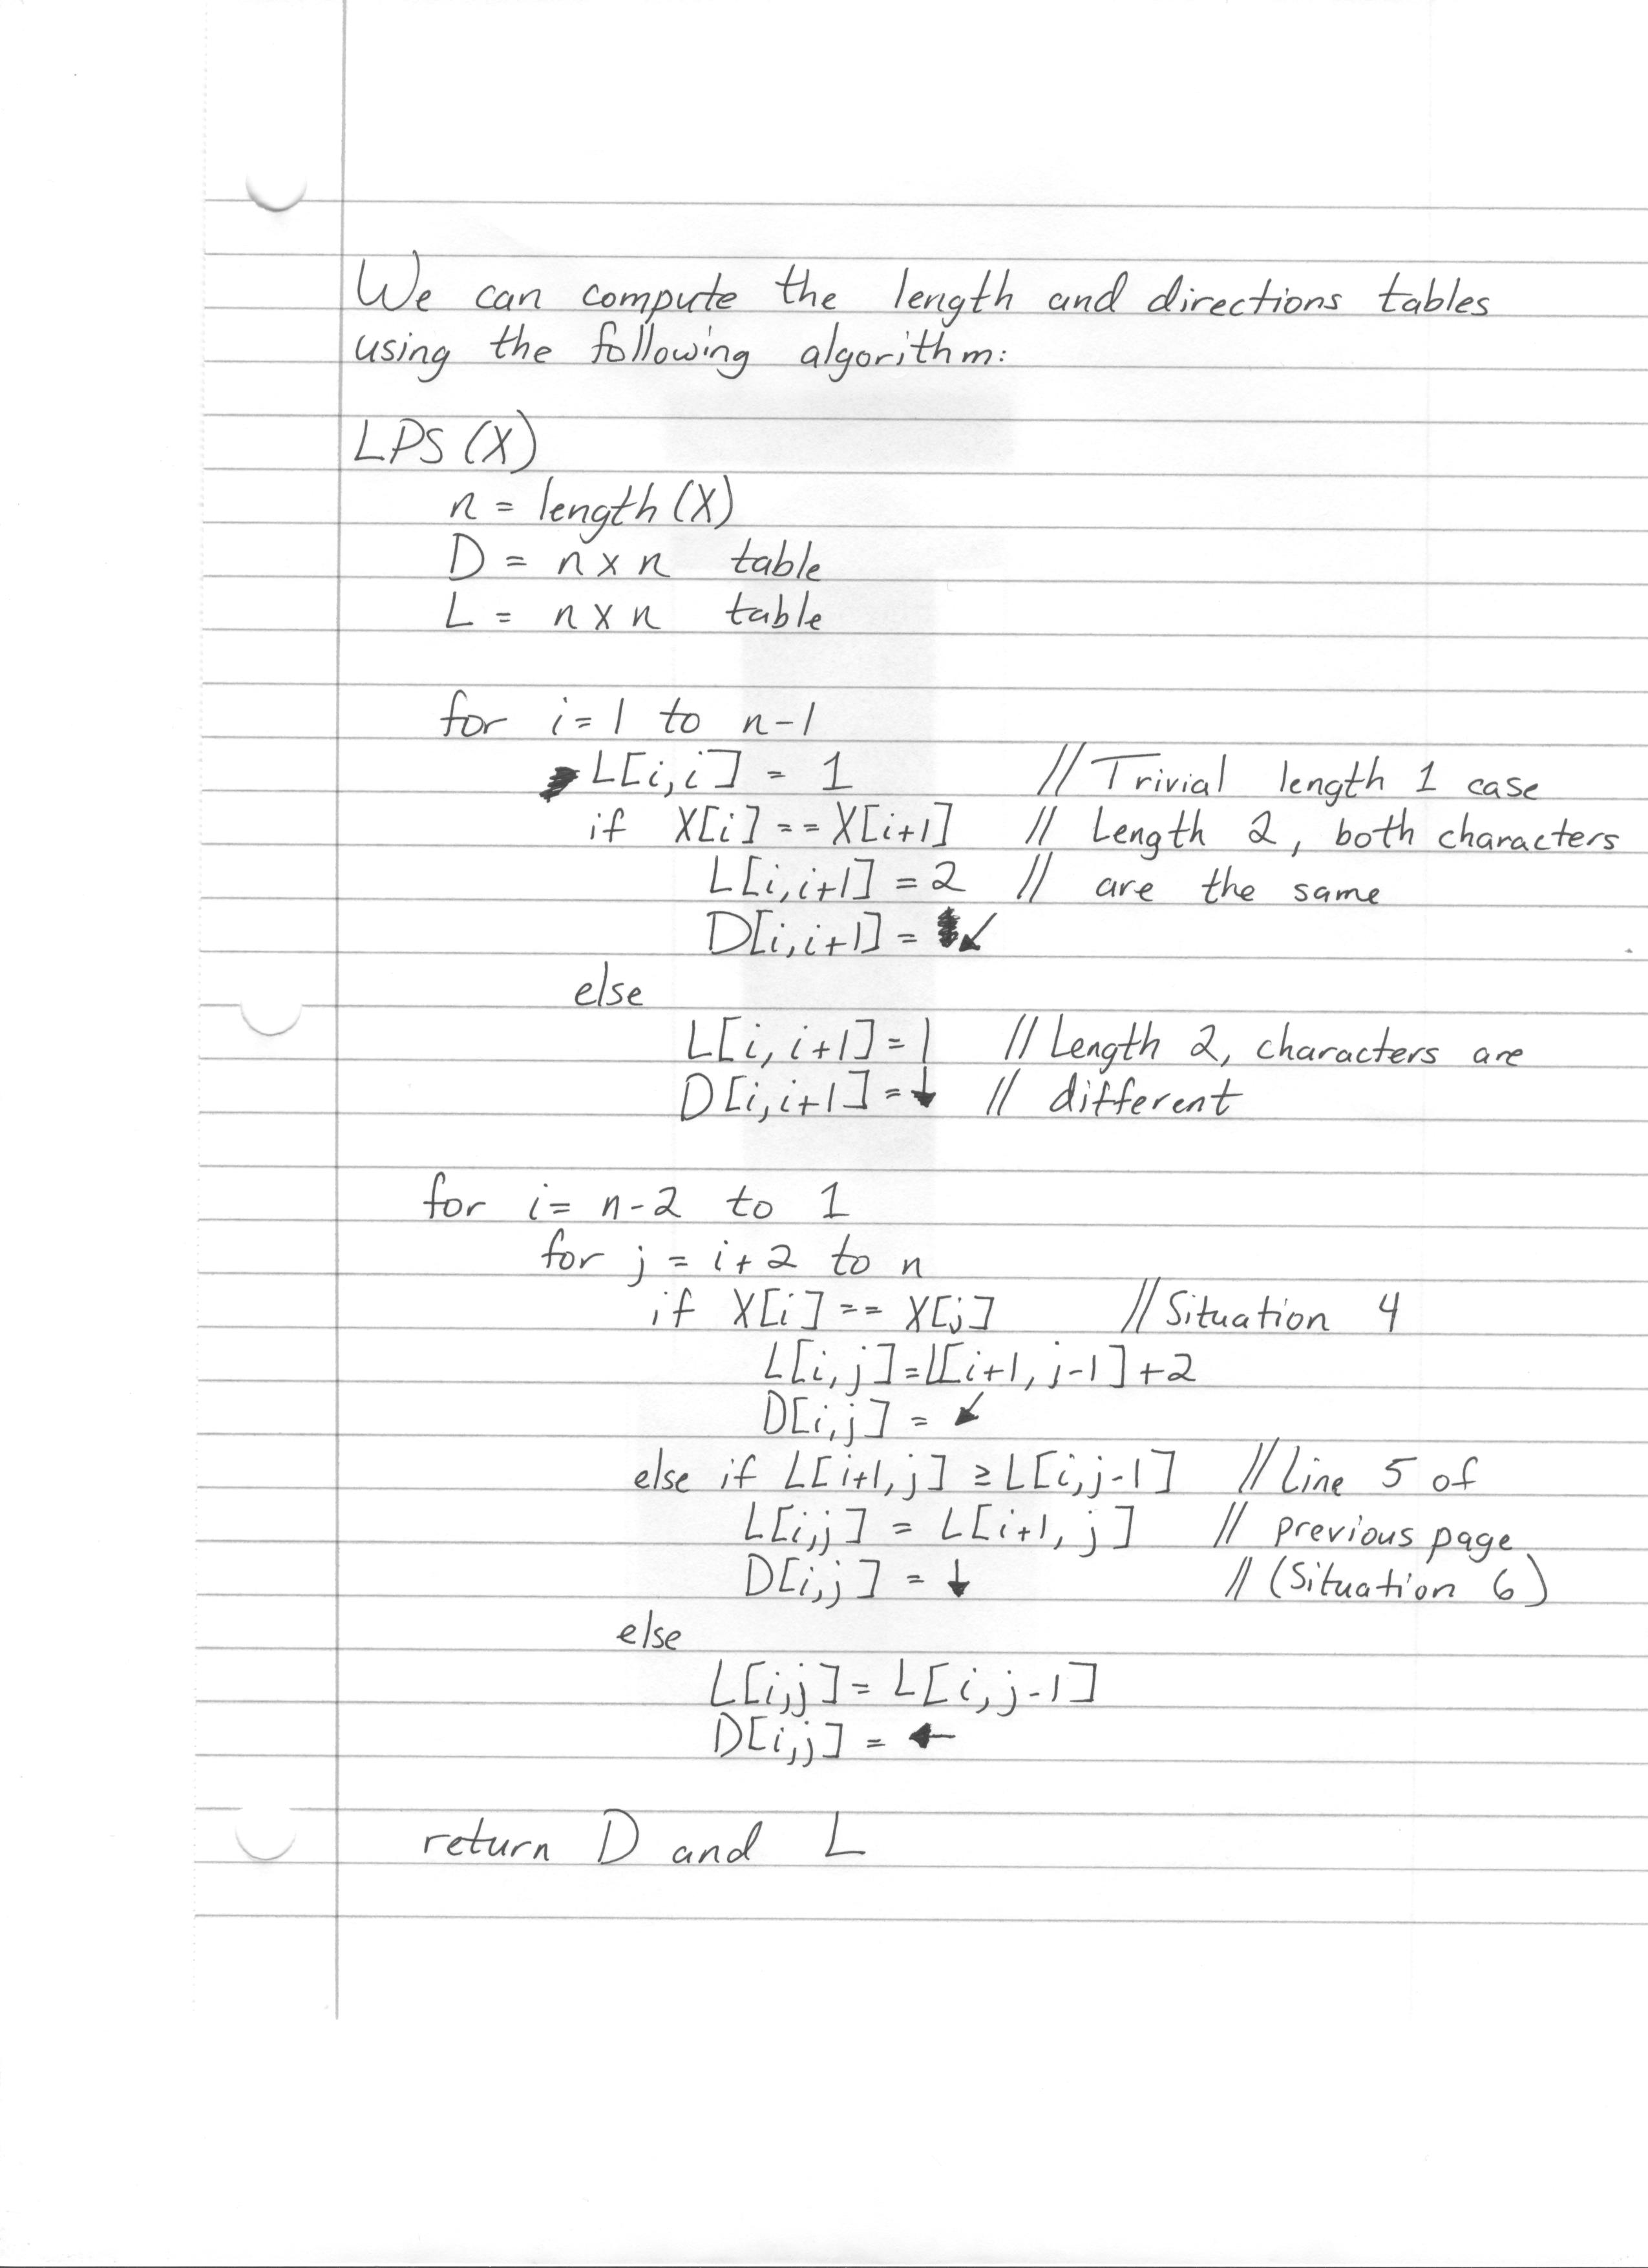 We can compute the length and directions tables
using the following algorithm:
LPS (X)
n = length (X)
D = n x n table
L = n x n table
for i = 1 to n-1
L[i,i] = 1 // Trivial length 1 case
if X[i] == X[i+1] // Length 2, both characters
L[i,i+1] = 2 // are the same
D[i,i+1] = ↙
else
L[i,i+1] = 1 // Length 2, characters are
D[i,i+1] = ↓ // different
for i = n-2 to 1
for j = i+2 to n
if X[i] == X[j] // Situation 4
L[i,j] = L[i+1, j-1] + 2
D[i,j] = ↙
else if L[i+1,j] ≥ L[i,j-1] // Line 5 of
L[i,j] = L[i+1, j] // previous page
D[i,j] = ↓ // (Situation 6)
else
L[i,j] = L[i,j-1]
D[i,j] = ←
return D and L